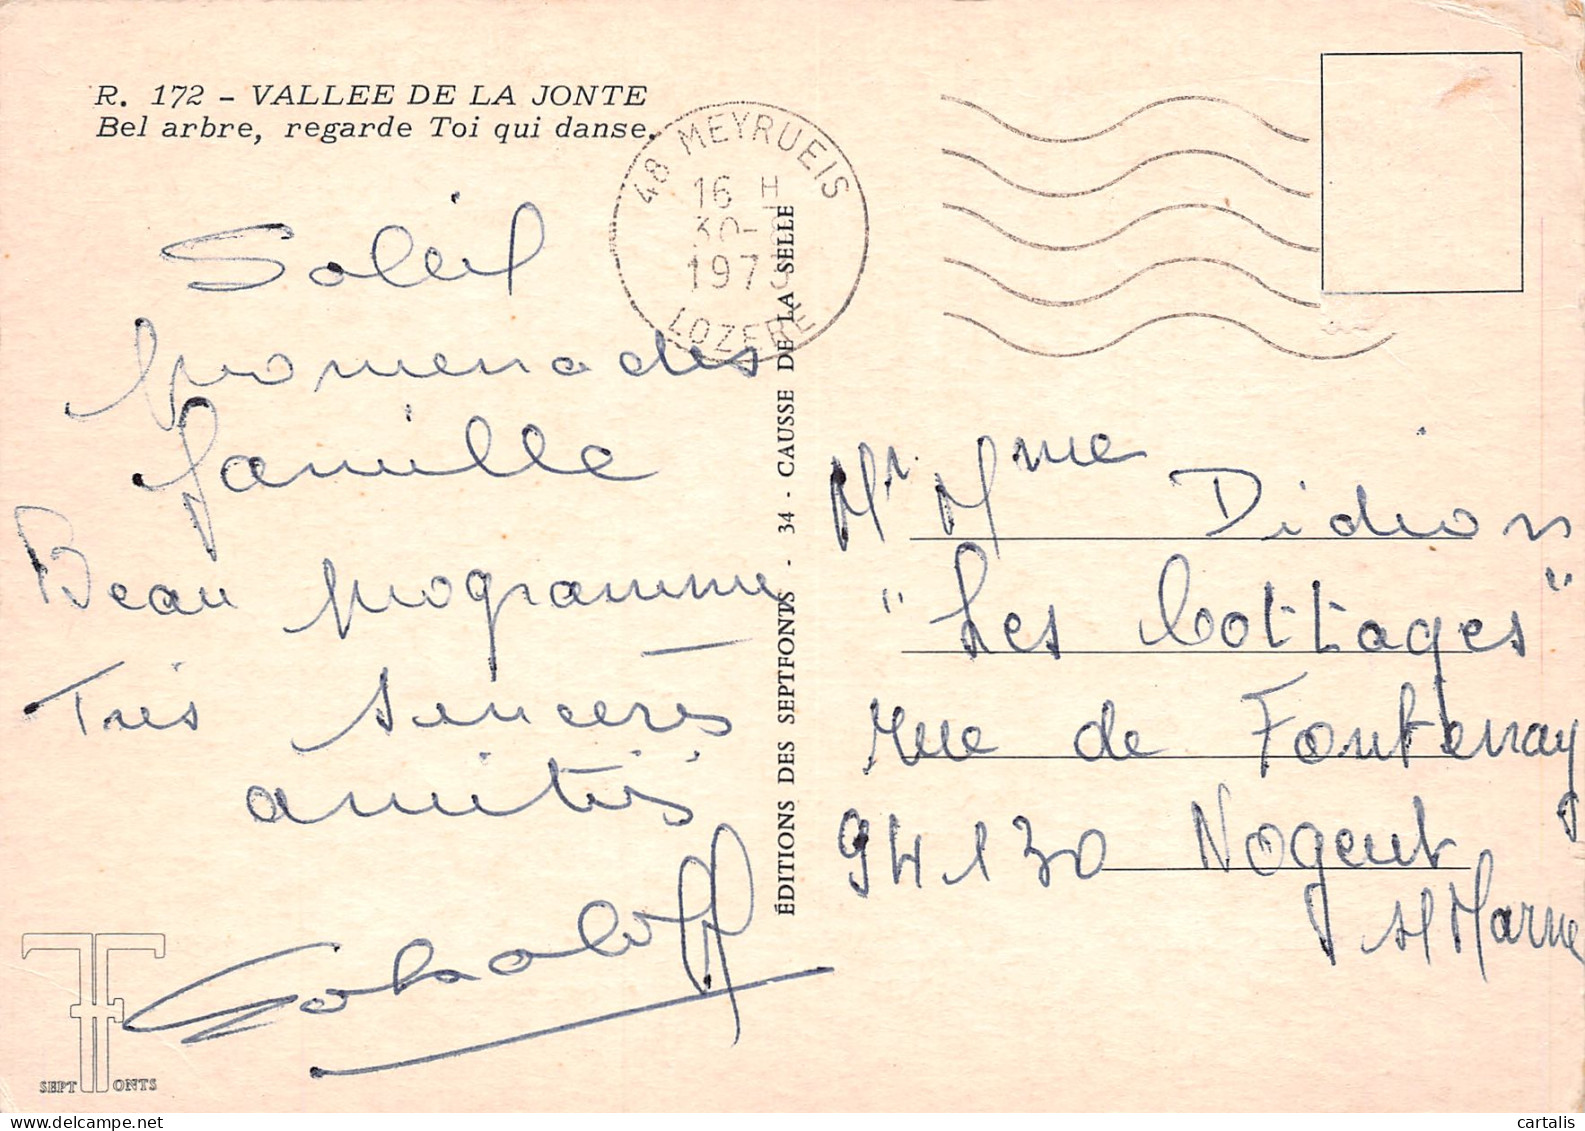 R. 172 - VALLEE DE LA JONTE
Bel arbre, regarde Toi qui danse.
48 MEYRUEIS
16 H
30-
1973
LOZERE
Soleil
promenades
famille
Beau programme
Très sincères
amitiés
ÉDITIONS DES SEPTFONTS - 34 - CAUSSE DE LA SELLE
Mr Mme
Didion
"Les Cottages"
rue de Fontenay
94130 Nogent
s/ Marne
SEPT FONTS
cartalis